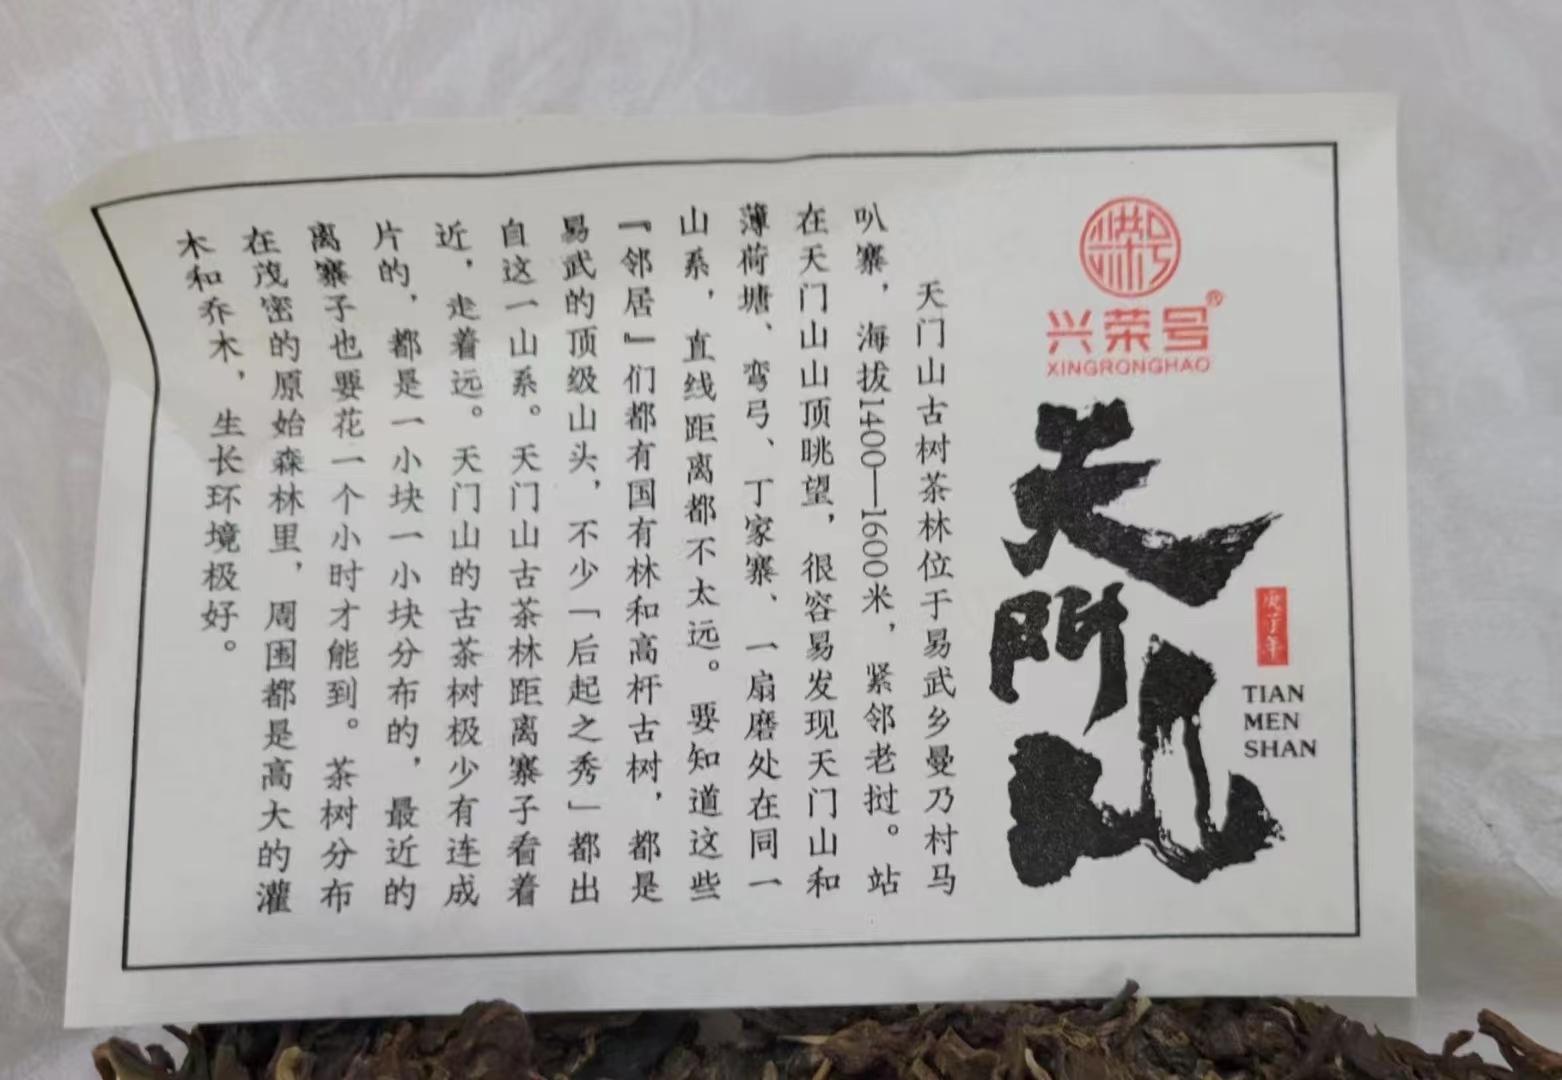 兴荣号®
XINGRONGHAO
天門山
TIAN
MEN
SHAN
天门山古树茶林位于易武乡曼乃村马
叭寨，海拔1400—1600米，紧邻老挝。站
在天门山山顶眺望，很容易发现天门山和
薄荷塘、弯弓、丁家寨、一扇磨处在同一
山系，直线距离都不太远。要知道这些
『邻居』们都有国有林和高杆古树，都是
易武的顶级山头，不少「后起之秀」都出
自这一山系。天门山古茶林距离寨子看着
近，走着远。天门山的古茶树极少有连成
片的，都是一小块一小块分布的，最近的
离寨子也要花一个小时才能到。茶树分布
在茂密的原始森林里，周围都是高大的灌
木和乔木，生长环境极好。